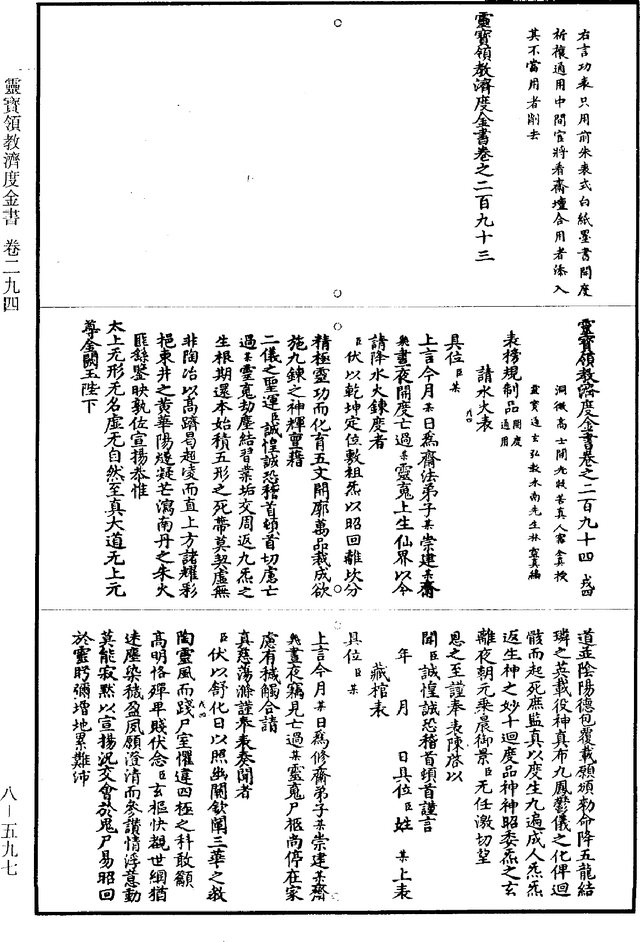 靈寶領教濟度金書 卷二九四
八－五九七
右言功表只用前朱表式白紙墨書開度
祈禳通用中間官將看齋壇合用者添入
其不當用者削去
靈寶領教濟度金書卷之二百九十三
靈寶領教濟度金書卷之二百九十四 戌四
洞微高士開光救苦真人甯全真授
靈寶通玄弘教水南先生林靈真編
表榜規制品 開度通用
請水火表 九四
具位臣某
上言今月某日為齋法弟子某崇建某齋
幾晝夜開度亡過某靈䰟上生仙界以今
請降水火鍊度者
臣伏以乾坤定位數祖炁以昭回離坎分
精極靈功而化育五文開廓萬品裁成欲
施九鍊之神輝亶藉
二儀之聖運臣誠惶誠恐稽首頓首切慮亡
過某靈䰟劫塵結習業垢交周返九炁之
生根期還本始積五形之死帶莫契虛無
非陶冶以高躋曷超凌而直上方諸耀彩
挹東井之黃華陽燧凝芒瀉南丹之朱火
匪錄鑒映孰佐宣揚恭惟
太上无形无名虛无自然至真大道无上元
尊金闕玉陛下
道並陰陽德包覆載願頒勑命降五龍結
璘之英載役神真布九鳳鬱儀之化俾迴
骸而起死庶監真以度生九遍成人炁炁
返生神之妙十迴度品神神昭委炁之玄
離夜朝元乘晨御景臣无任激切望
恩之至謹奉表陳啓以
聞臣誠惶誠恐稽首頓首謹言
年 月 日具位臣姓 某上表
藏棺表
具位臣某
上言今月某日為修齋弟子某崇建某齋
幾晝夜竊見亡過某靈䰟尸柩尚停在家
慮有穢觸合請
真慈蕩滌謹奉表奏聞者
臣伏以舒化日以照幽關欽闡三華之教
陶靈風而踐尸室懼違四極之科敢籲
高明恪殫卑賤伏念臣玄樞快覩世網猶
迷塵染穢盈夙願澄清而參讚情浮意動
莫能寂黙以宣揚況交會於鬼尸易昭回
於靈眄彌增地累難沛